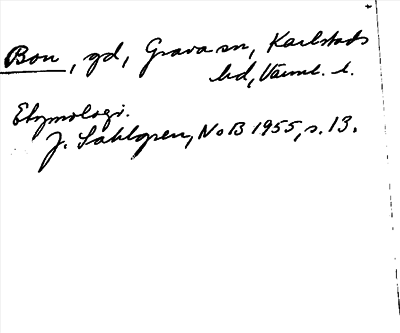 Bon, gd, Grava sn, Karlstads
hd, Värml. l.
Etymologi.
J. Sahlgren, NoB 1955, s. 13.